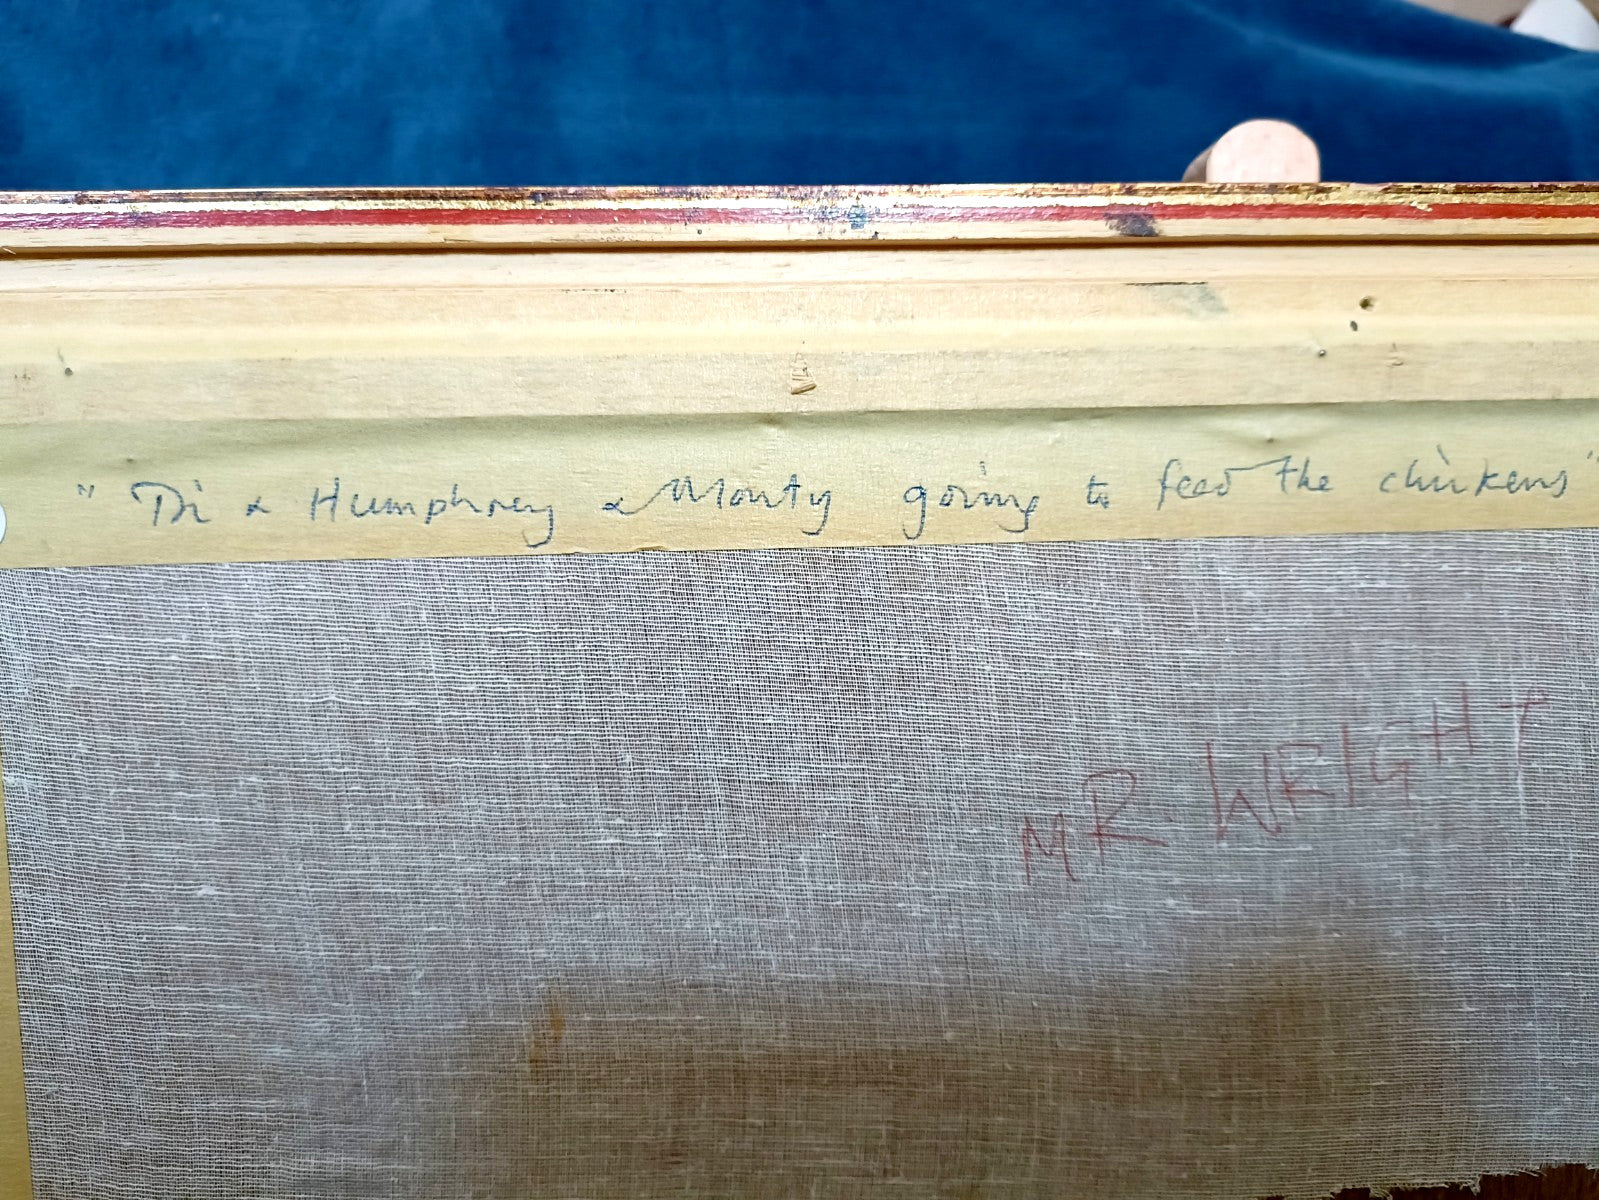 "Di & Humphrey & Monty going to feed the chickens"
MR. WRIGHT